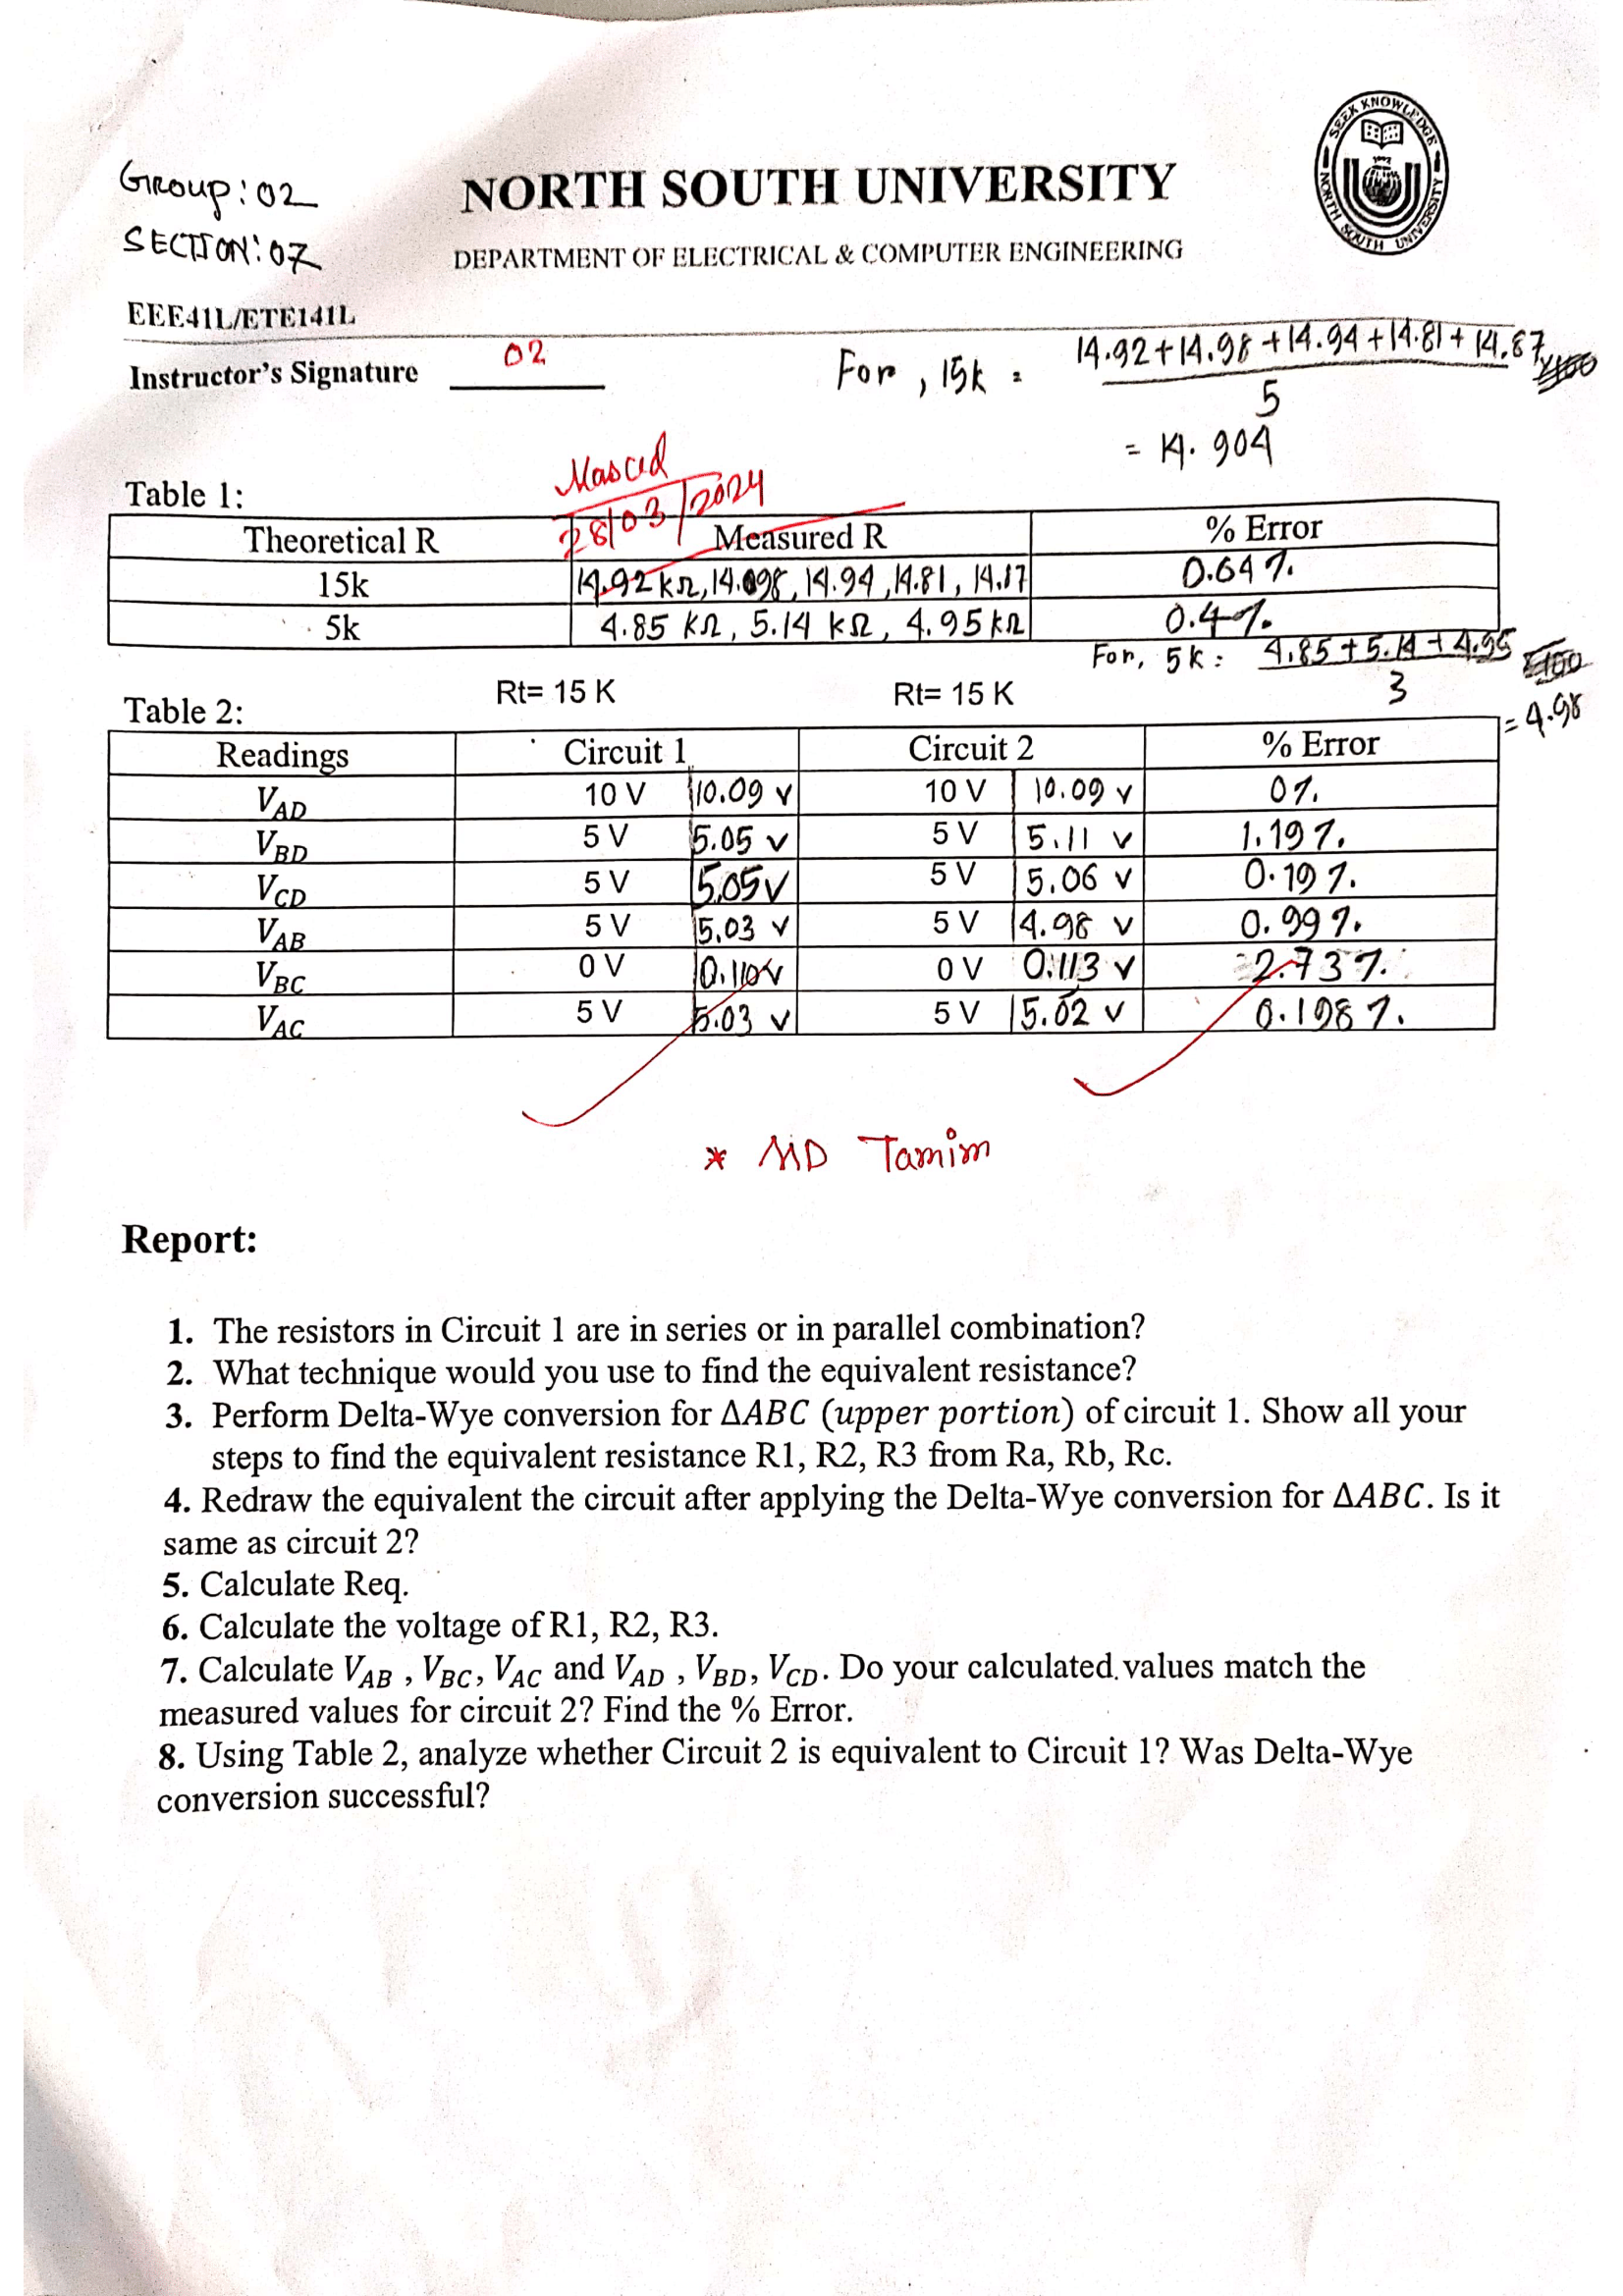 SEEK KNOWLEDGE
NORTH SOUTH UNIVERSITY
Group: 02
SECTION: 07
NORTH SOUTH UNIVERSITY
DEPARTMENT OF ELECTRICAL & COMPUTER ENGINEERING
EEE41L/ETE141L
Instructor's Signature 02
For, 15k = 14.92+14.98+14.94+14.81+14.87
5
= 14.904
28/03/2024
Table 1:
Theoretical R Measured R % Error
15k 14.92 kΩ, 14.098, 14.94, 14.81, 14.87 0.64%
5k 4.85 kΩ, 5.14 kΩ, 4.95 kΩ 0.4%
For, 5k: 4.85+5.14+4.95
3
= 4.98
Rt= 15 K Rt= 15 K
Table 2:
Readings Circuit 1 Circuit 2 % Error
VAD 10 V 10.09 v 10 V 10.09 v 0%
VBD 5 V 5.05 v 5 V 5.11 v 1.19%
VCD 5 V 5.05 v 5 V 5.06 v 0.19%
VAB 5 V 5.03 v 5 V 4.98 v 0.99%
VBC 0 V 0.110 v 0 V 0.113 v 2.73%
VAC 5 V 5.03 v 5 V 5.02 v 0.198%
* MD Tamim
Report:
1. The resistors in Circuit 1 are in series or in parallel combination?
2. What technique would you use to find the equivalent resistance?
3. Perform Delta-Wye conversion for ΔABC (upper portion) of circuit 1. Show all your
steps to find the equivalent resistance R1, R2, R3 from Ra, Rb, Rc.
4. Redraw the equivalent the circuit after applying the Delta-Wye conversion for ΔABC. Is it
same as circuit 2?
5. Calculate Req.
6. Calculate the voltage of R1, R2, R3.
7. Calculate VAB , VBC, VAC and VAD , VBD, VCD. Do your calculated values match the
measured values for circuit 2? Find the % Error.
8. Using Table 2, analyze whether Circuit 2 is equivalent to Circuit 1? Was Delta-Wye
conversion successful?